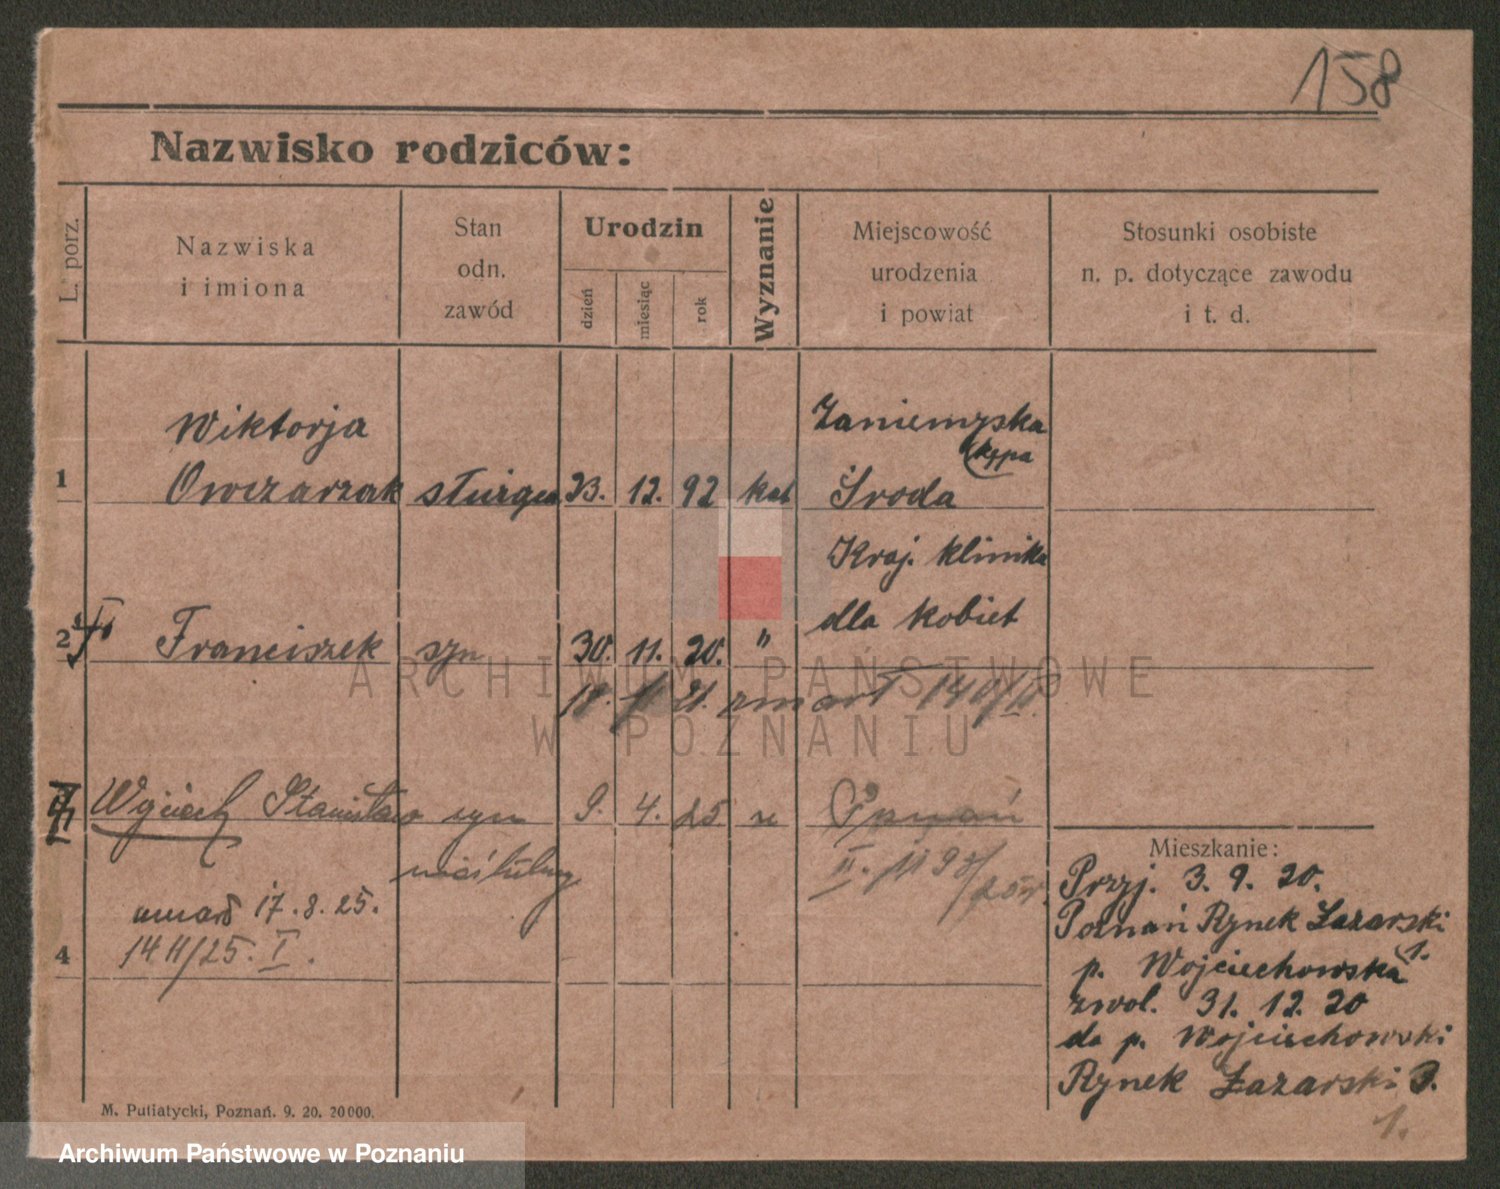 158
Nazwisko rodziców:
L. porz.
Nazwiska
i imiona
Stan
odn.
zawód
Urodzin
dzień
miesiąc
rok
Wyznanie
Miejscowość
urodzenia
i powiat
Stosunki osobiste
n. p. dotyczące zawodu
i t. d.
Wiktorja
Zaniemyska
Kępa
1 Owczarzak służąca 23. 12. 92 kat Środa
Kraj. klinika
dla kobiet
2 Franciszek syn 30. 11. 20. "
18. 21. zmart 140/II.
Wojciech Stanisław syn 9. 4. 25 Poznań
nieślubny II. 25r.
umarł 17.8.25.
4 14 II/25. I.
Mieszkanie:
Przyj. 3. 9. 20.
Poznań Rynek Łazarski
1.
p. Wojciechowska
zwol. 31. 12. 20
do p. Wojciechowski
Rynek Łazarski
1.
M. Putiatycki, Poznań. 9. 20. 20000.
ARCHIWUM PAŃSTWOWE
W POZNANIU
Archiwum Państwowe w Poznaniu